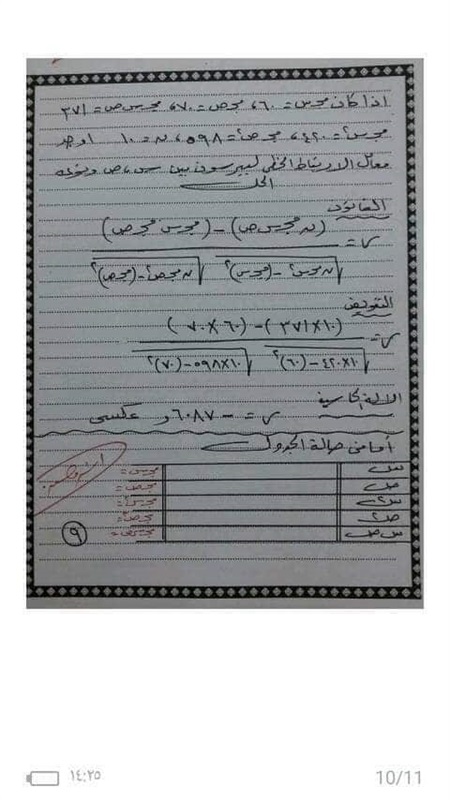 اذا كان مجـ س = ٦٠ ، مجـ ص = ٧٠ ، مجـ س ص = ٣٧١
مجـ س٢ = ٤٢٠ ، مجـ ص٢ = ٥٩٨ ، ن = ١٠ اوجد
معامل الارتباط الخطى لبيرسون بين س ، ص ونوعه
الحل
القانون
ر = (ن مجـ س ص) - (مجـ س مجـ ص)
√ن مجـ س٢ - (مجـ س)٢ √ن مجـ ص٢ - (مجـ ص)٢
التعويض
ر = (١٠ × ٣٧١) - (٦٠ × ٧٠)
√١٠ × ٤٢٠ - (٦٠)٢ √١٠ × ٥٩٨ - (٧٠)٢
الالة الحاسبة ر = - ٦٠٨٧و عكسى
أما فى حالة الجدول
س مجـ س =
ص مجـ ص =
س٢ مجـ س٢ =
ص٢ مجـ ص٢ =
س ص مجـ س ص =
٩
١٤:٢٥ 10/11